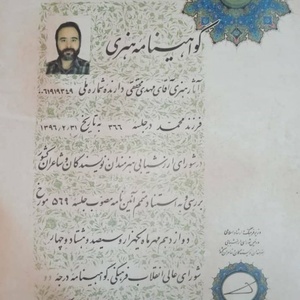 گواهینامه هنری
آثار هنری آقای مهدی محققی دارنده شماره ملی ۰۶۱۹۱۹۳۴۹
فرزند محمد در جلسه ۳۶۶ به تاریخ ۱۳۹۶/۲/۳۱
در شورای ارزشیابی هنرمندان نویسندگان و شاعران کشور
بررسی و به استناد آئین نامه مصوب جلسه ۵۶۹ مورخ
دوازدهم مهرماه یکهزار و سیصد و هشتاد و چهار
شورای عالی انقلاب فرهنگی، گواهینامه درجه دو